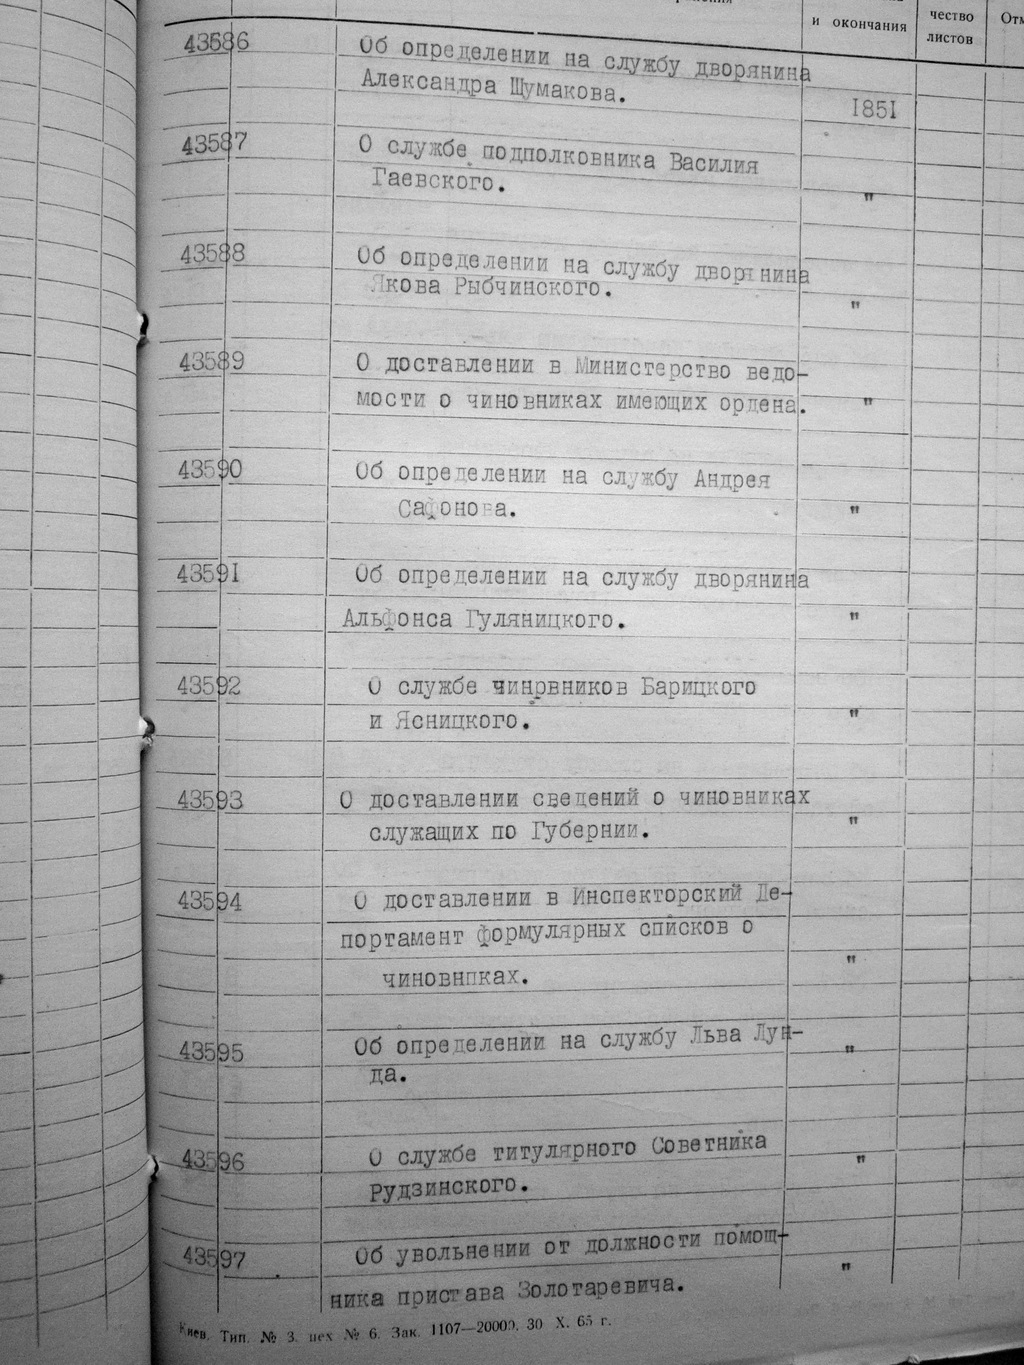 и окончания
чество
листов
43586 Об определении на службу дворянина
Александра Щумакова.
1851
43587 О службе подполковника Василия
Гаевского. "
43588 Об определении на службу дворянина
Якова Рыбчинского. "
43589 О доставлении в Министерство ведо-
мости о чиновниках имеющих ордена. "
43590 Об определении на службу Андрея
Сафонова. "
43591 Об определении на службу дворянина
Альфонса Гуляницкого. "
43592 О службе чинрвников Барицкого
и Ясницкого. "
43593 О доставлении сведений о чиновниках
служащих по Губернии. "
43594 О доставлении в Инспекторский Де-
портамент формулярных списков о
чиновниках. "
43595 Об определении на службу Льва Лун-
да. "
43596 О службе титулярного Советника
Рудзинского. "
43597 Об увольнении от должности помощ-
ника пристава Золотаревича. "
Киев. Тип. № 3. цех № 6. Зак. 1107—20000. 30 X. 65 г.